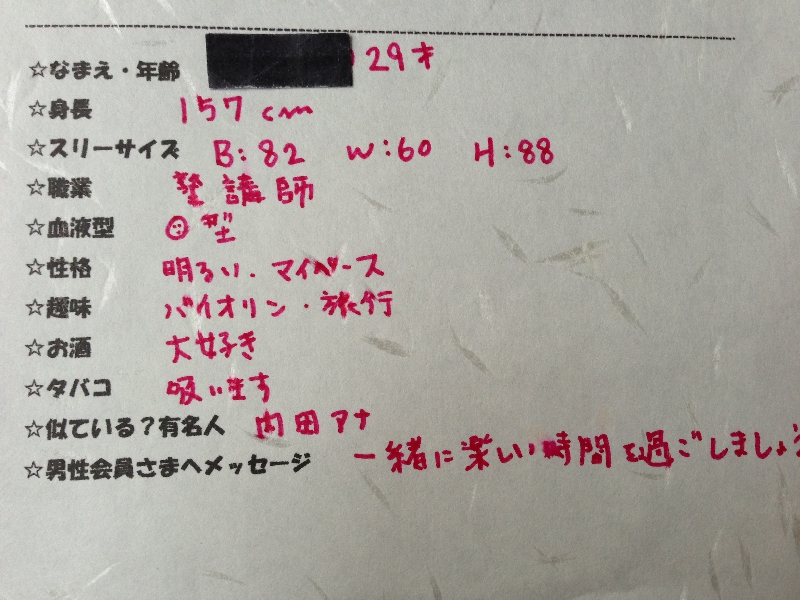 ☆なまえ・年齢 29才
☆身長 157cm
☆スリーサイズ B:82 W:60 H:88
☆職業 塾講師
☆血液型 O型
☆性格 明るい.マイペース
☆趣味 バイオリン・旅行
☆お酒 大好き
☆タバコ 吸います
☆似ている？有名人 内田アナ
☆男性会員さまへメッセージ 一緒に楽しい時間を過ごしましょう